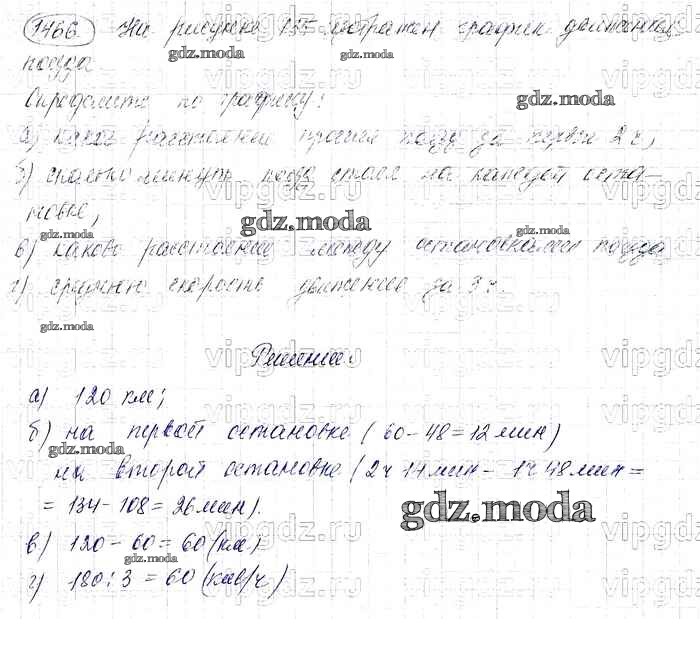 1466. На рисунке 155 изображен график движения
поезда.
Определите по графику:
а) какое расстояние прошел поезд за первые 2 ч,
б) сколько минут поезд стоял на каждой оста-
новке,
в) каково расстояние между остановками поезда
г) среднюю скорость движения за 3 ч.
Решение:
а) 120 км;
б) на первой остановке (60-48=12 мин)
на второй остановке (2ч 14 мин - 1ч 48 мин =
= 134-108=26 мин).
в) 120-60=60 (км)
г) 180:3=60 (км/ч)
gdz.moda
vipgdz.ru